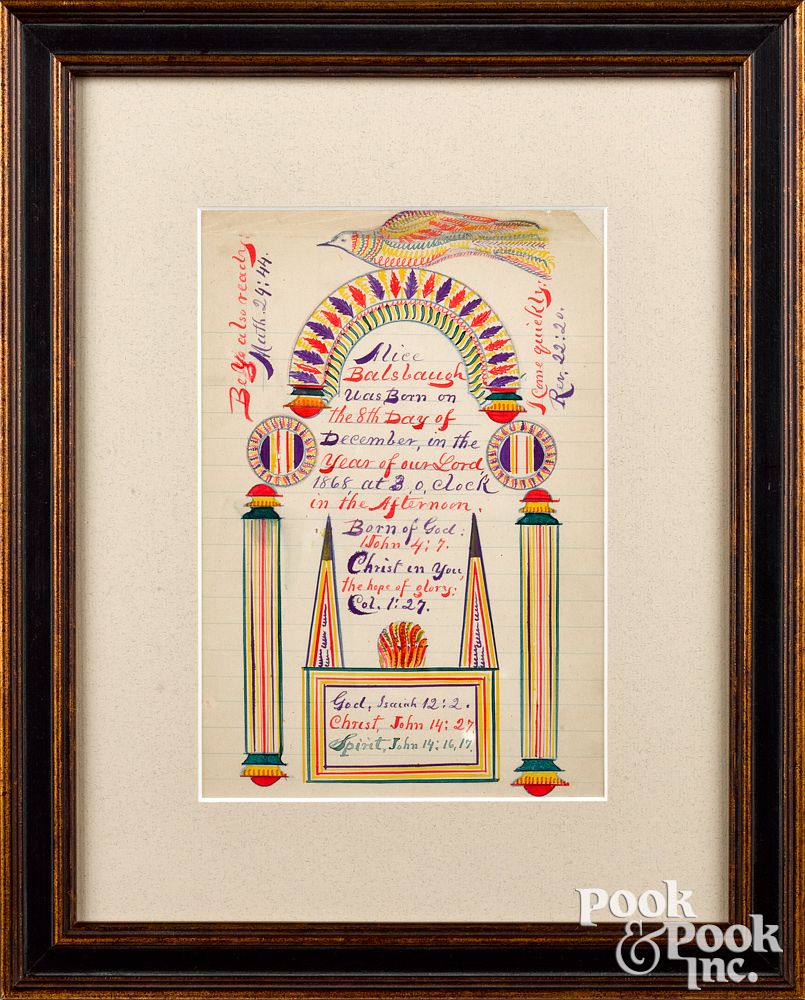 Be Ye also ready:
Math. 24:44.
I Come quickly:
Rev. 22:20.
Alice
Balsbaugh
Was Born on
the 8th Day of
December, in the
Year of our Lord,
1868 at 3 o, clock
in the Afternoon.
Born of God:
1 John 4:7.
Christ in You,
the hope of glory:
Col. 1:27.
God, Isaiah 12:2.
Christ, John 14:27
Spirit, John 14:16,17.
POOK
& POOK
INC.